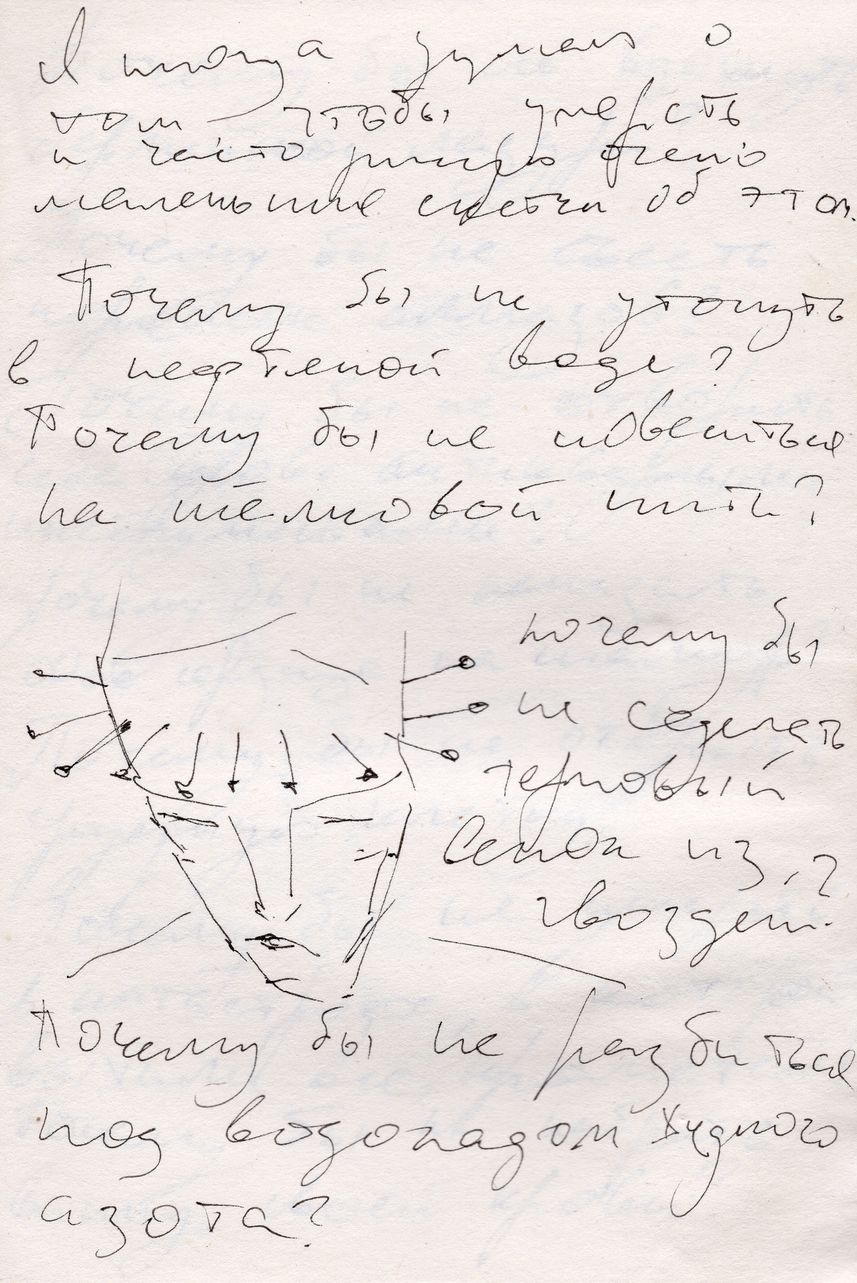 Я иногда думаю о
том чтобы умереть
и часто рисую очень
маленькие скетчи об этом.
Почему бы не утонуть
в нефтяной воде?
Почему бы не повеситься
на шёлковой нити?
почему бы
не сделать
терновый
венок из
гвоздей?
Почему бы не разбиться
под водопадом жидкого
азота?